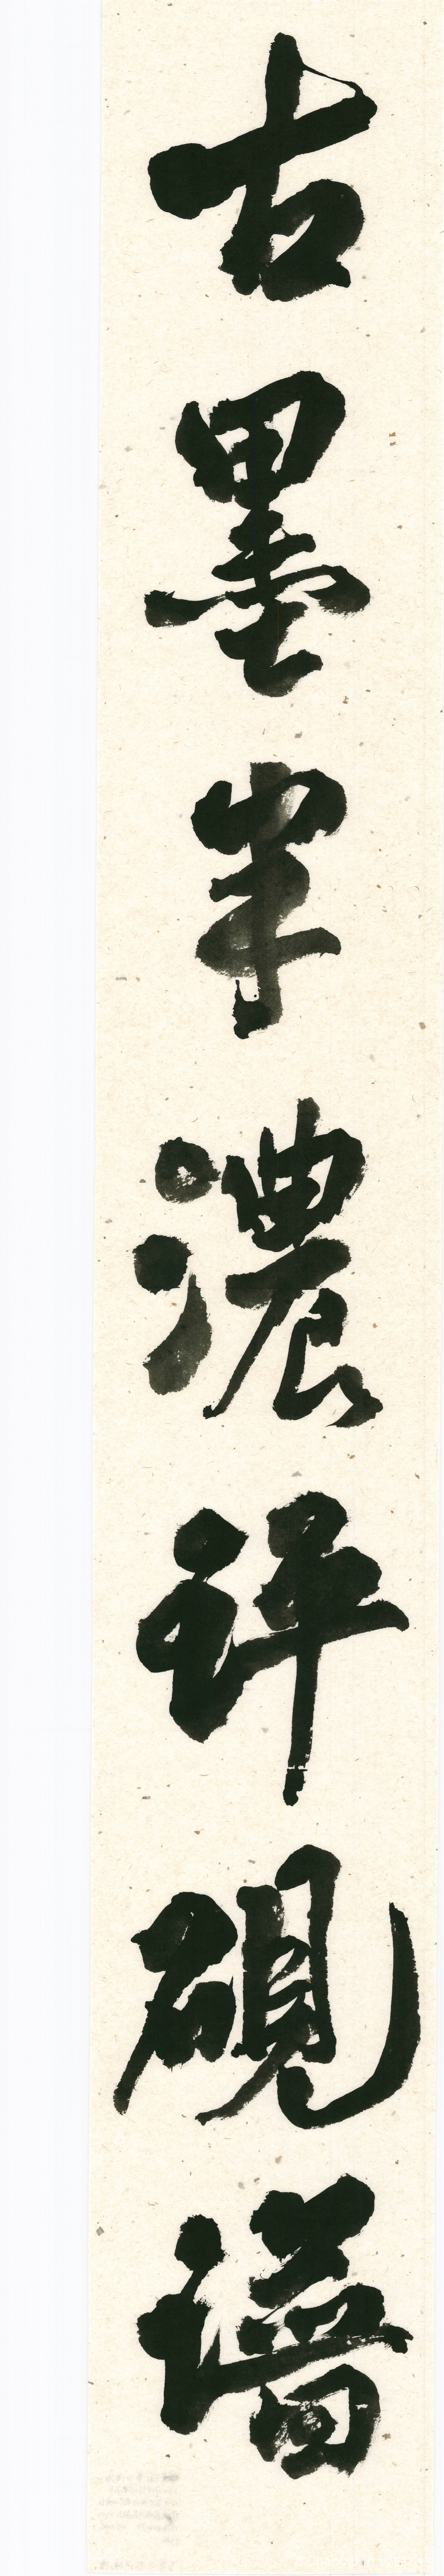 古墨半濃評硯譜